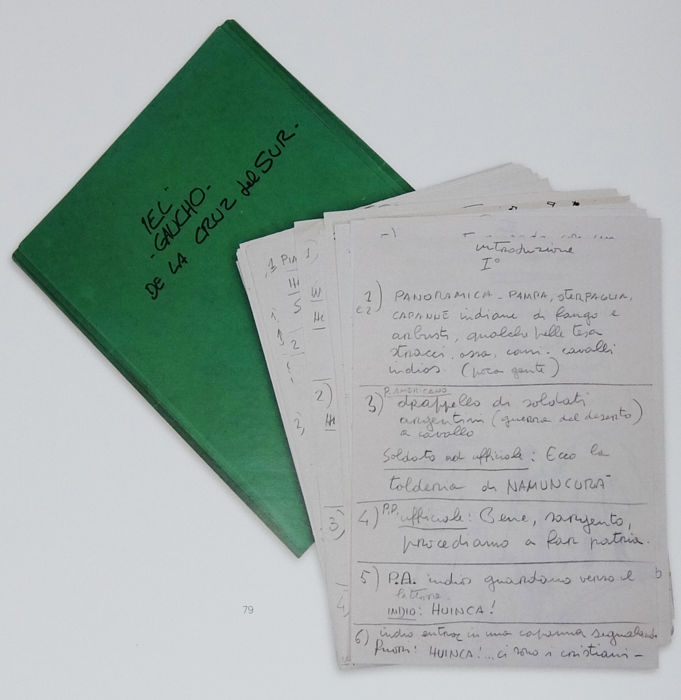 "EL"
- GAUCHO -
DE LA CRUZ del SUR -
introduzione
I°
1)
e 2) PANORAMICA - PAMPA, STERPAGLIA,
CAPANNE indiane di fango e
arbusti, qualche pelle tesa
stracci, ossa, cani. cavalli
indios. (poca gente)
P. AMERICANO
3) drappello di soldati
argentini (guerra del deserto)
a cavallo
Soldato ad ufficiale: Ecco la
tolderia di NAMUNCURÁ
4) P.P. ufficiale: Bene, sargento,
procediamo a far patria.
5) P.A. indios guardano verso il
lettore.
INDIO: HUINCA!
6) indio entra in una capanna segnalando
HUINCA!... ci sono i cristiani -
1)
PIA
2)
3)
79